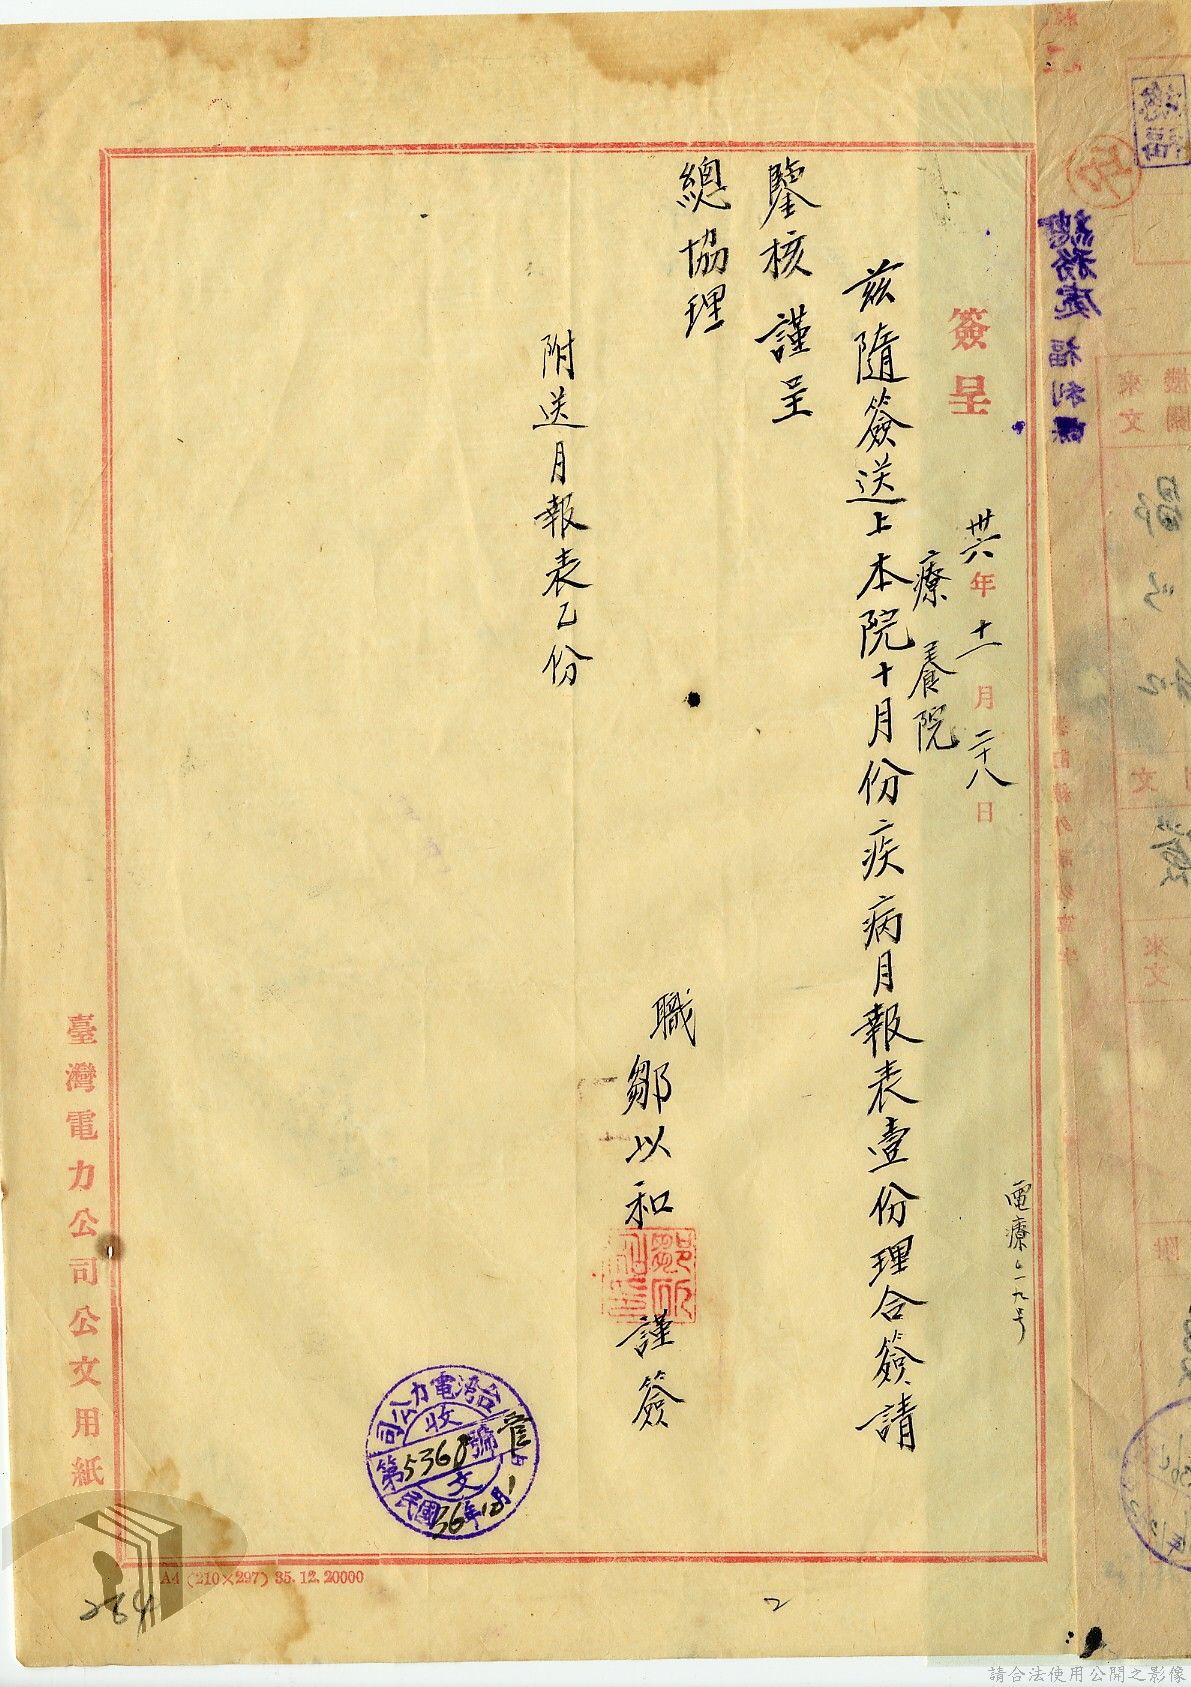 簽呈
卅六年十一月二十八日
療養院
電療乙一九号
茲隨簽送上本院十月份疾病月報表壹份理合簽請
鑒核謹呈
總協理
職鄒以和謹簽
附送月報表乙份
台灣電力公司
收文
第5368號
民國36年12月1日
臺灣電力公司公文用紙
A4 (210×297) 35.12.20000
284
2
總務處 福利課
機關
來文
請合法使用公開之影像